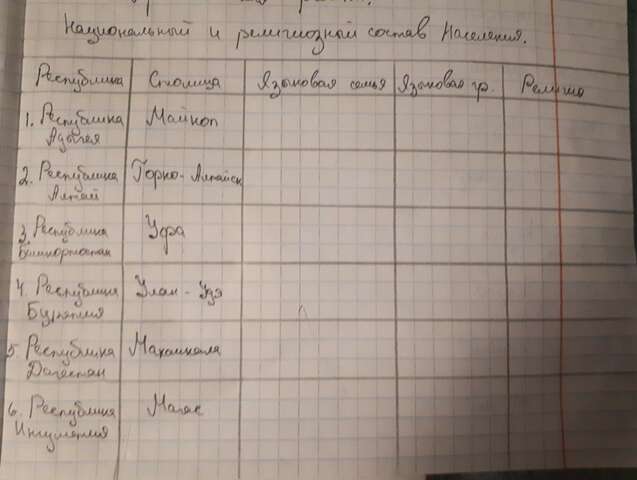 Национальный и религиозный состав населения.
Республика Столица Языковая семья Языковая гр. Религия
1. Республика Адыгея Майкоп
2. Республика Алтай Горно-Алтайск
3. Республика Башкортостан Уфа
4. Республика Бурятия Улан-Удэ
5. Республика Дагестан Махачкала
6. Республика Ингушетия Магас